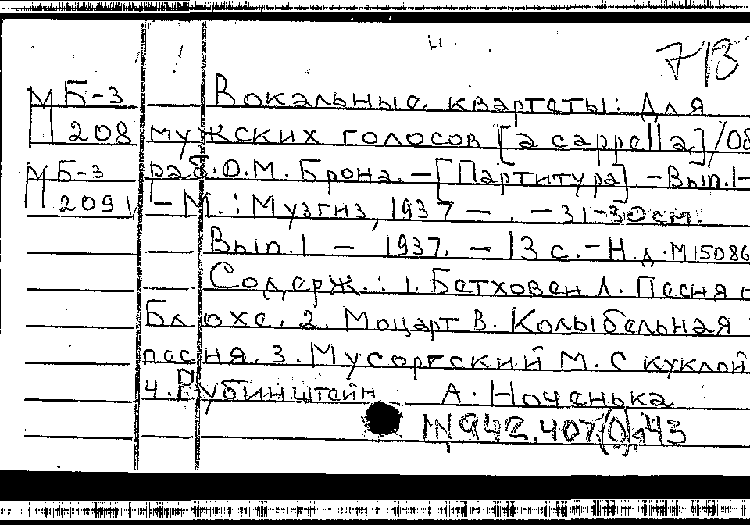 713
М Б-3 Вокальные квартеты: Для
208 мужских голосов [a cappella]/Об
М Б-3 раб. О.М. Брона. – [Партитура] – Вып.1–
2091 – М.: Музгиз, 1937 – . – 31-30см.
Вып.1 – 1937. – 13 с. – Н.д. М15086
Содерж.: 1. Бетховен Л. Песня о
Блохе. 2. Моцарт В. Колыбельная
песня. 3. Мусоргский М. С куклой
4. Рубинштейн А. Ноченька
942.407 43